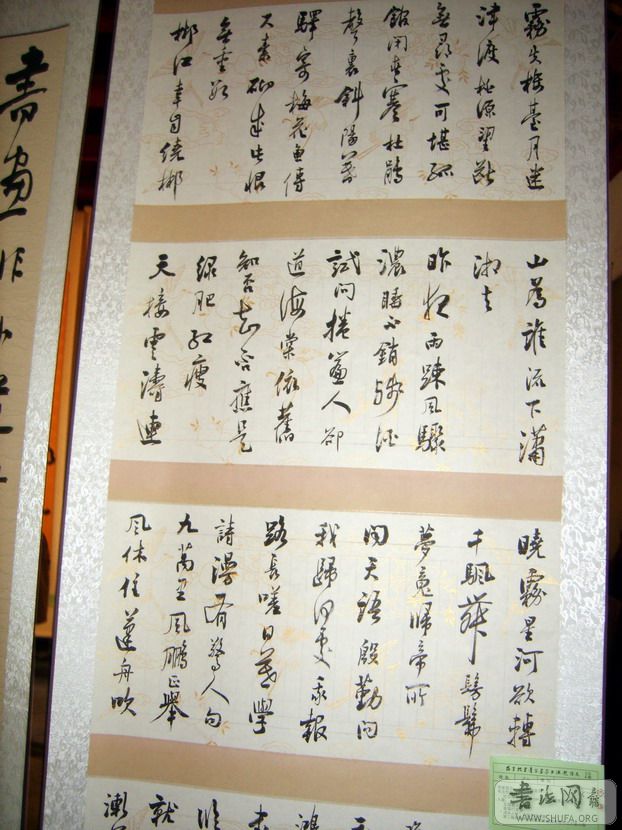 霧失樓臺月迷
津渡桃源望斷
無尋處可堪孤
館閉春寒杜鵑
聲裏斜陽暮
驛寄梅花魚傳
尺素砌成此恨
無重數
郴江幸自繞郴
山為誰流下瀟
湘去
昨夜雨疎風驟
濃睡不銷殘酒
試問捲簾人卻
道海棠依舊
知否知否應是
綠肥紅瘦
天接雲濤連
曉霧星河欲轉
千帆舞髣髴
夢魂歸帝所
聞天語殷勤問
我歸何處我報
路長嗟日暮學
詩謾有驚人句
九萬里風鵬正舉
風休住蓬舟吹
書畫作
书法网
WWW.SHUFA.ORG